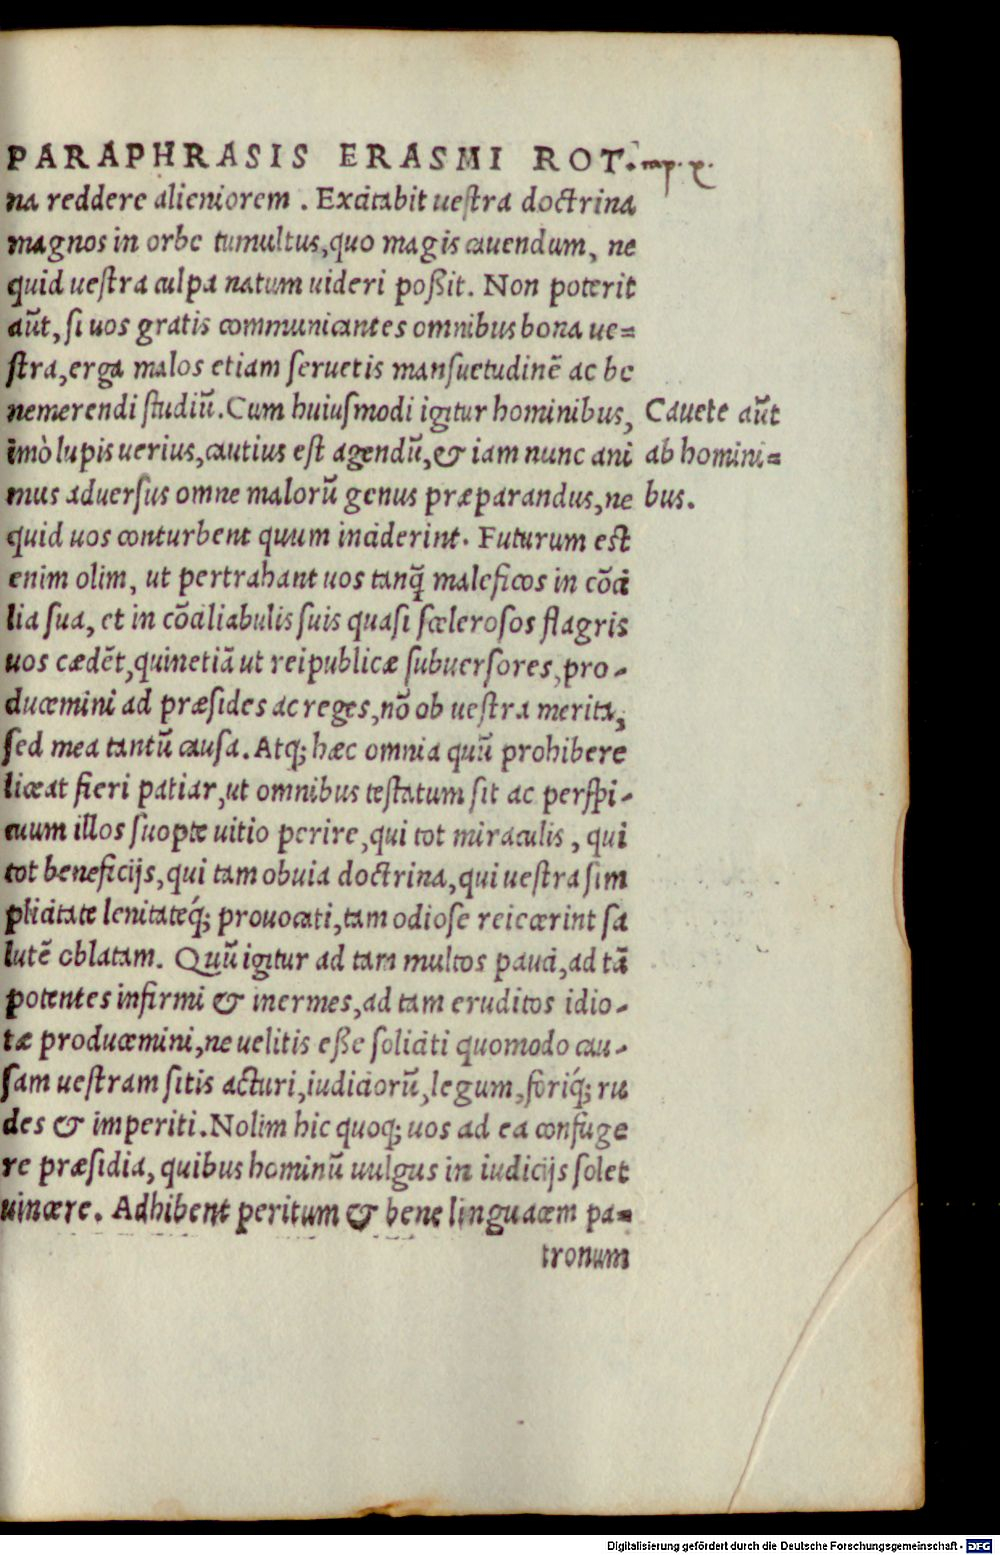 PARAPHRASIS ERASMI ROT. cap. x.
na reddere alieniorem . Excitabit uestra doctrina
magnos in orbe tumultus,quo magis cauendum, ne
quid uestra culpa natum uideri poßit. Non poterit
aūt, si uos gratis communicantes omnibus bona ue=
stra,erga malos etiam seruetis mansuetudinē ac be
nemerendi studiū.Cum huiusmodi igitur hominibus,
imò lupis uerius,cautius est agendū,& iam nunc ani
mus aduersus omne malorū genus præparandus,ne
Cauete aūt
ab homini=
bus.
quid uos conturbent quum inciderint. Futurum est
enim olim, ut pertrahant uos tanq̃ maleficos in cōci
lia sua, et in cōciliabulis suis quasi scelerosos flagris
uos cædēt,quinetiā ut reipublicæ subuersores,pro-
ducemini ad præsides ac reges,nō ob uestra merita,
sed mea tantū causa.Atq; hæc omnia quū prohibere
liceat fieri patiar,ut omnibus testatum sit ac perspi-
cuum illos suopte uitio perire,qui tot miraculis, qui
tot beneficijs,qui tam obuia doctrina,qui uestra sim
plicitate lenitateq́; prouocati,tam odiose reiecerint sa
lutē oblatam. Quū igitur ad tam multos pauci,ad tā
potentes infirmi & inermes,ad tam eruditos idio-
tæ producemini,ne uelitis eße soliciti quomodo cau-
sam uestram sitis acturi,iudiciorū,legum,foriq́; ru
des & imperiti.Nolim hic quoq; uos ad ea confuge
re præsidia, quibus hominū uulgus in iudicijs solet
uincere. Adhibent peritum & bene linguacem pa=
tronum
Digitalisierung gefördert durch die Deutsche Forschungsgemeinschaft - DFG